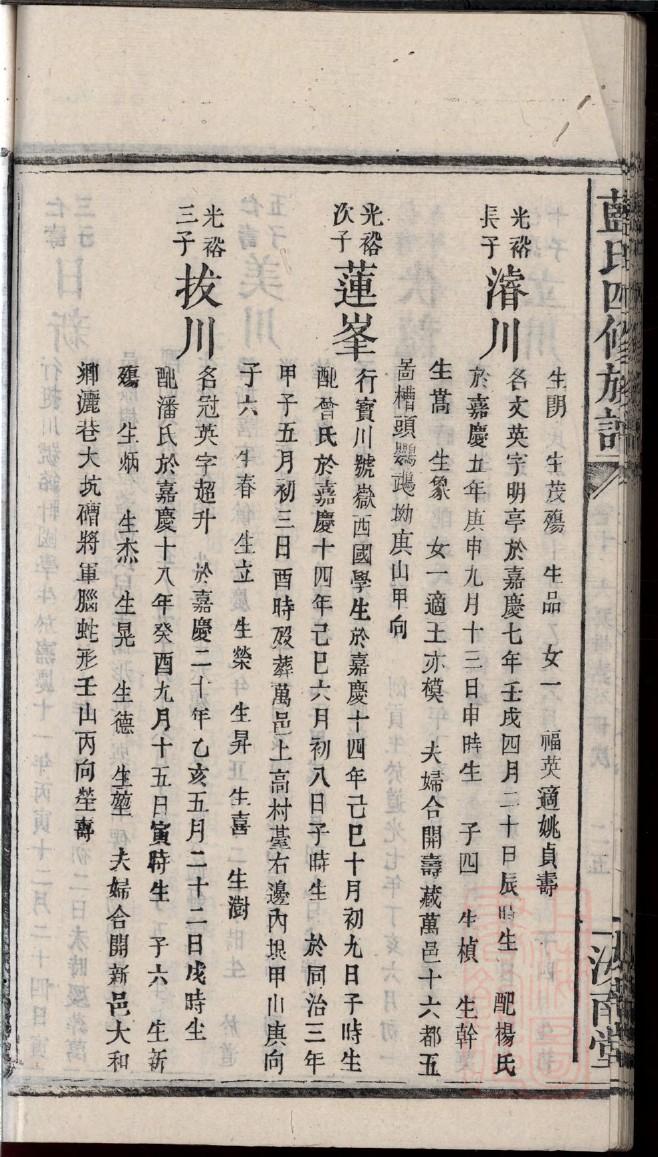 藍氏四修族譜
汝南堂
生朗　生茂殤　生品　女一　福英適姚貞壽
光裕長子
濬川
名文英字明亭於嘉慶七年壬戌四月二十日辰時生　配楊氏
於嘉慶五年庚申九月十三日申時生　子四　生楨　生幹
生嵩　生象　女一適王亦模　夫婦合開壽藏萬邑十六都五
啚槽頭鸚鵡坳庚山甲向
光裕次子
蓮峯
行賓川號嶽西國學生於嘉慶十四年己巳十月初九日子時生
配曾氏於嘉慶十四年己巳六月初八日子時生　於同治三年
甲子五月初三日酉時歿葬萬邑上高村臺右邊內垠甲山庚向
子六　生春　生立　生榮　生昇　生喜　生澍
光裕三子
拔川
名冠英字超升　於嘉慶二十年乙亥五月二十二日戌時生
配潘氏於嘉慶十八年癸酉九月十五日寅時生　子六　生新
殤　生炳　生杰　生晃　生德　生堃　夫婦合開新邑大和
鄉灑巷大坑礌將軍腦蛇形壬山丙向塋壽